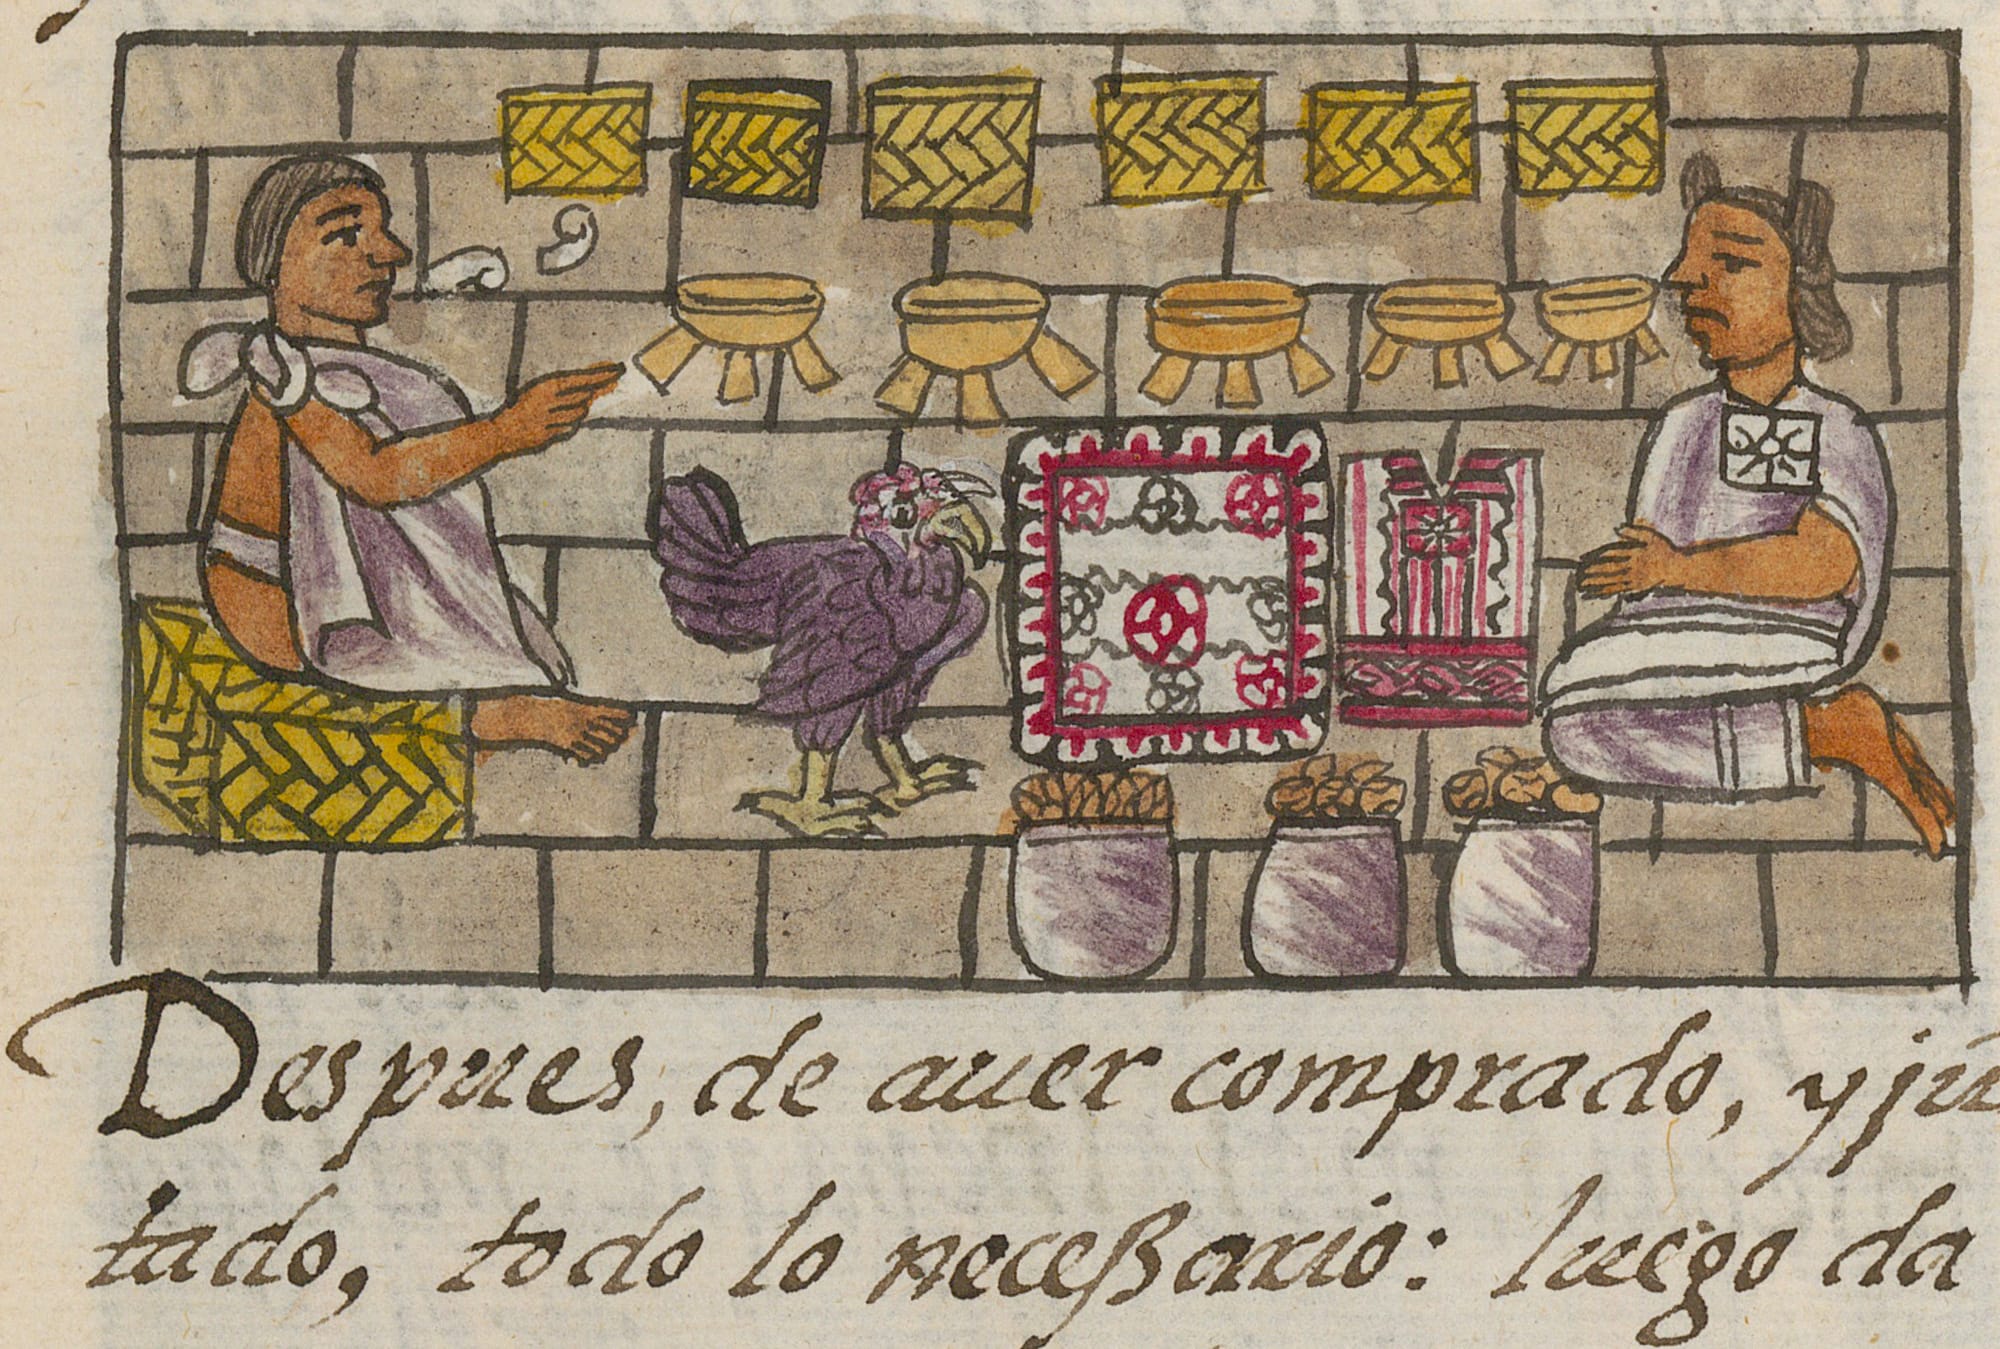 Despues, de auer comprado, y jũ
tado, todo lo neceßario: luego da